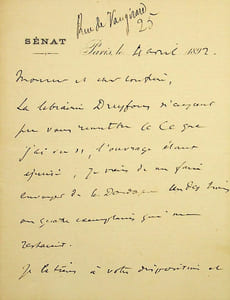 Rue de Vaugirard
25
SÉNAT
Paris, le 4 avril 1892
Monsieur et cher confrère,
La librairie Dreyfous n'ayant
pu vous remettre le
j'ai vu, l'ouvrage étant
épuisé, je vais de me faire
envoyer de la Dordogne un des trois
ou quatre exemplaires qui me
restaient.
Je le tiens à votre disposition et